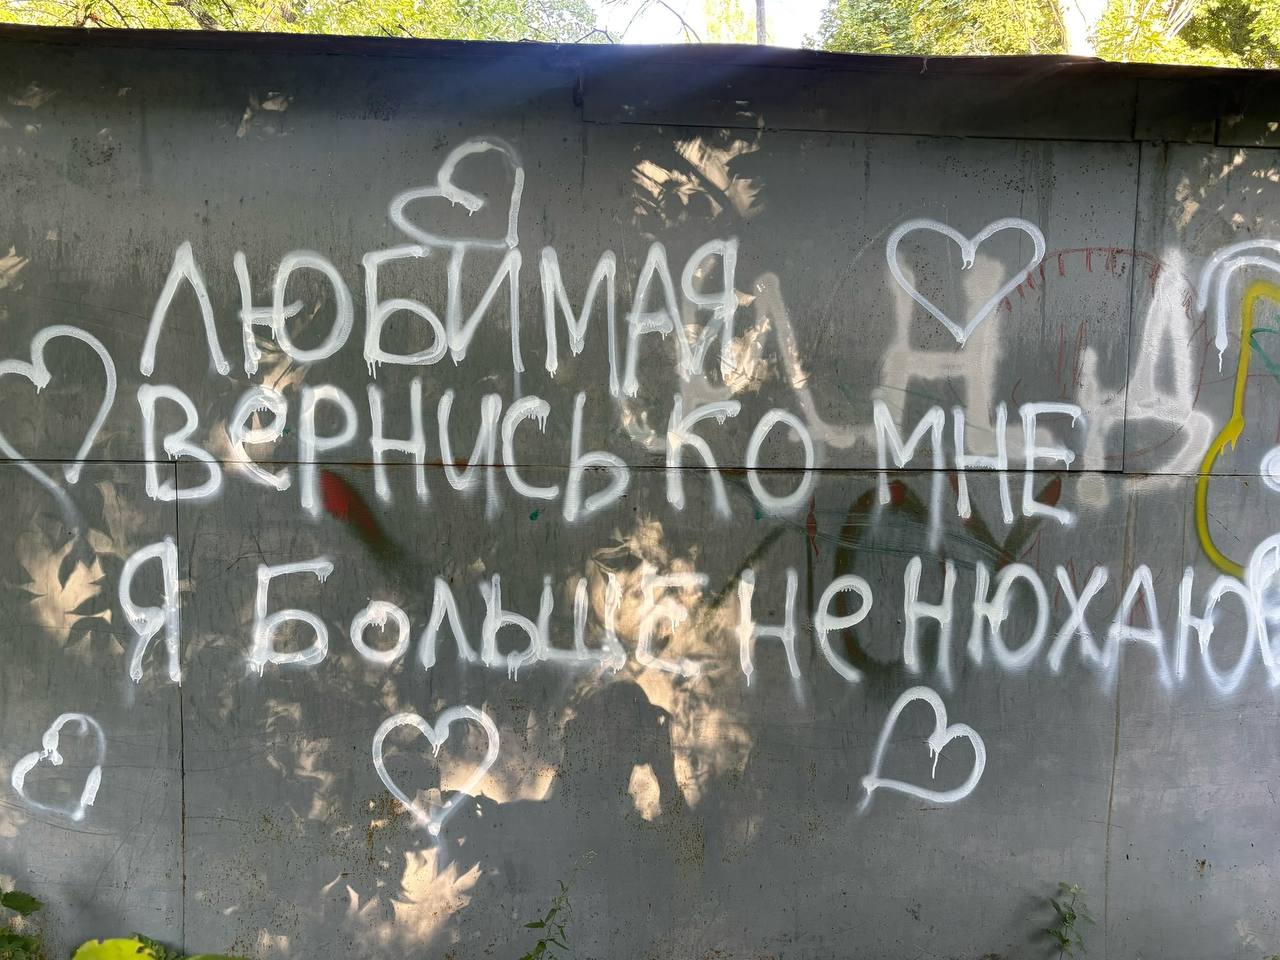 ЛЮБИМАЯ
ВеРНИСЬ КО МНЕ
Я БоЛЬШЕ Не НЮХАЮ